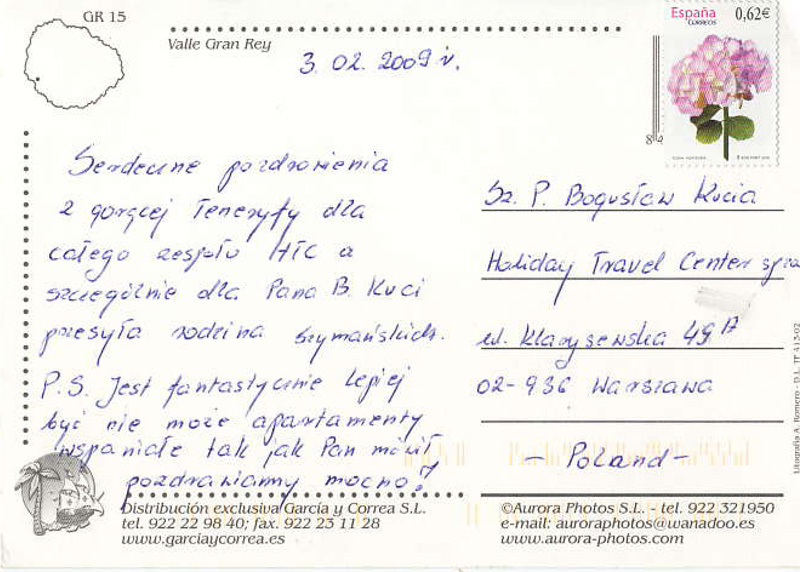 GR 15
España
CORREOS
0,62€
Valle Gran Rey
3. 02. 2009 r.
Serdeczne pozdrowienia
z gorącej Teneryfy dla
całego zespołu HTC a
szczególnie dla Pana B. Kuci
przesyła rodzina Szymańskich.
P.S. Jest fantastycznie lepiej
być nie może apartamenty
wspaniałe tak jak Pan mówił
pozdrawiamy mocno!
Sz. P. Bogusław Kucia
Holiday Travel Center
ul. Klaryszewska 49A
02-936 Warszawa
- Poland -
Distribución exclusiva García y Correa S.L.
tel. 922 22 98 40; fax. 922 23 11 28
www.garciaycorrea.es
©Aurora Photos S.L. - tel. 922 321950
e-mail: auroraphotos@wanadoo.es
www.aurora-photos.com
Litografía A. Romero - D.L. TF 413-92